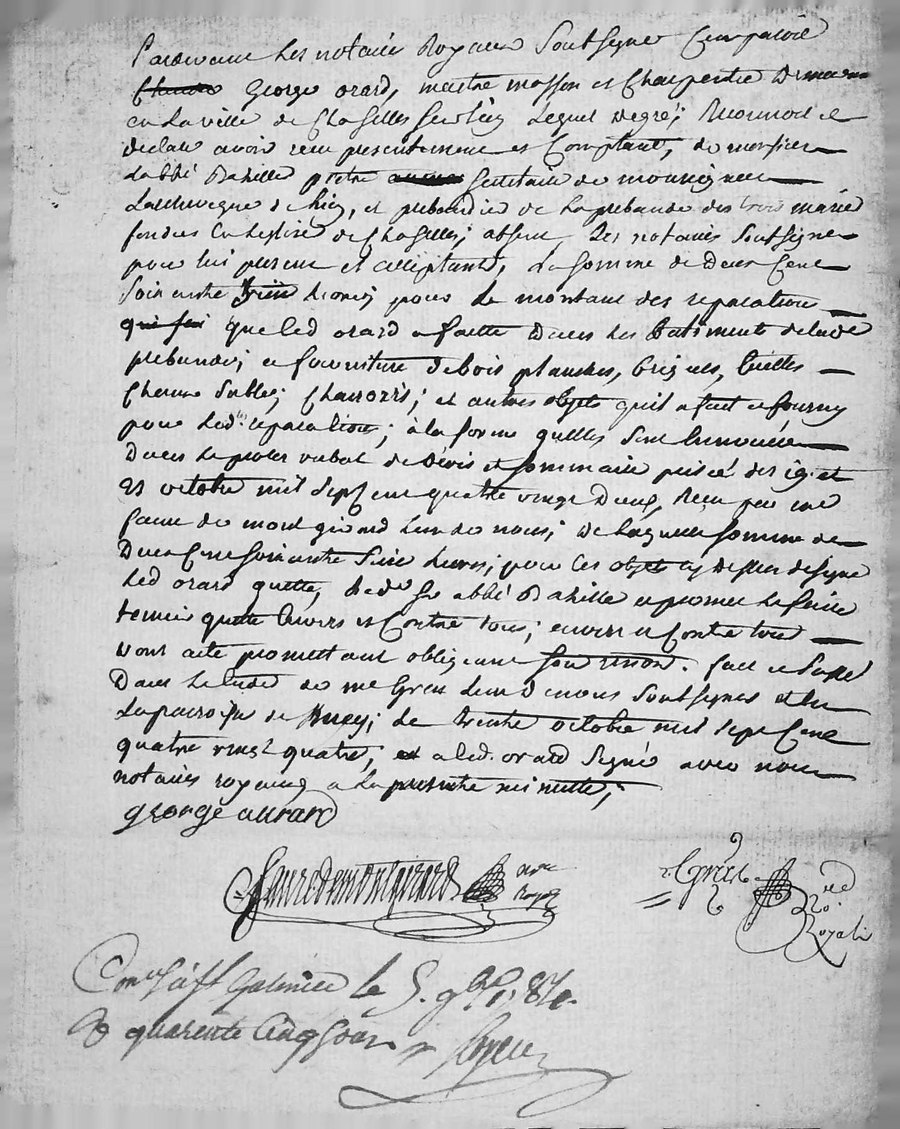 Pardevant Les notaires Royaux Soussignes Comparoit
George orard, maitre masson et Charpentier Demeurant
en La ville de Chazelles Sur Lion Lequel degré; Reconnoit et
declare avoir recu presentement et Comptant, de monsieur
Labbé Bahille pretre Secretaire de monseigneur
Larcheveque de Lion, et prebandier de La prebande des trois marie
fondée en Leglise de Chazelles; absent Les notaires Soussignes
pour lui present et acceptants, La Somme de Deux Cent
Soixante livres pour Le montant des reparations
que led orard a faitte Dans Les Batiments de lade
prebande; et fourniture de bois planches, briques, tuilles
Cheaux Sable; Charrois; et autres objets quil a fait et fourny
pour lesd. reparations; à la forme quelles Sont Ennoncée
Dans Le procès verbal de devis et Sommaire prisée des 19. et
21 octobre mil Sept cent quatre vingt Deux, Recu par me
faure de montgirard Lun de nous; De laquelle Somme de
Deux Cent Soixante livres, pour Les objets cy dessus designe
Led orard quitte, Led. Sr abbé Bahille et promet Le faire
tenir quitte Envers et Contre tous; envers et Contre tous
Dont acte promettant obligeant Renon. fait et Passé
Dans Letude de me Gren Lun De nous Soussignes et En
La paroisse de; Le trente octobre mil Sept Cent
quatre vingt quatre, et a led. orard Signé avec nous
notaires royaux a La presente minutte;
george aurard
fauredemontgirard Nre Royal
Gren Nore Royal
Conlé à St Galmier le 5. 9bre 1784.
R quarente Cinq Sous